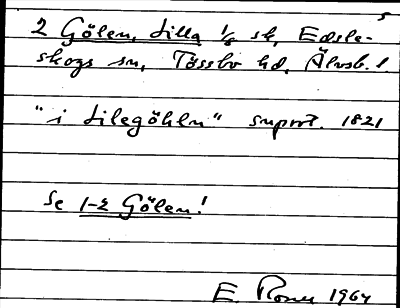 5
2 Gölen, Lilla 1/6 sk, Edsle-
skogs sn, Tössbo hd, Älvsb. l
"i Lilegöhln" suport. 1821
Se 1-2 Gölen!
E. 1964